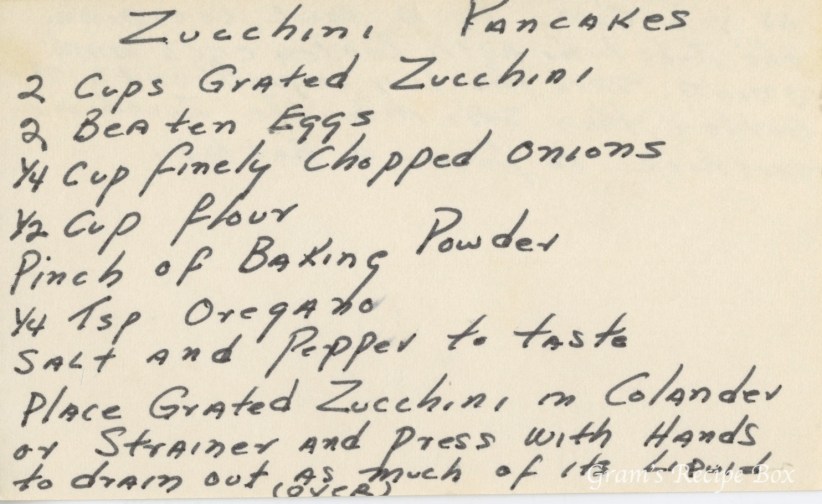 Zucchini Pancakes
2 Cups Grated Zucchini
2 Beaten Eggs
1/4 Cup finely Chopped onions
1/2 Cup flour
Pinch of Baking Powder
1/4 Tsp Oregano
Salt and Pepper to taste
Place Grated Zucchini in Colander
or Strainer and Press with Hands
to drain out as much of its liquid
(over)
Gram's Recipe Box